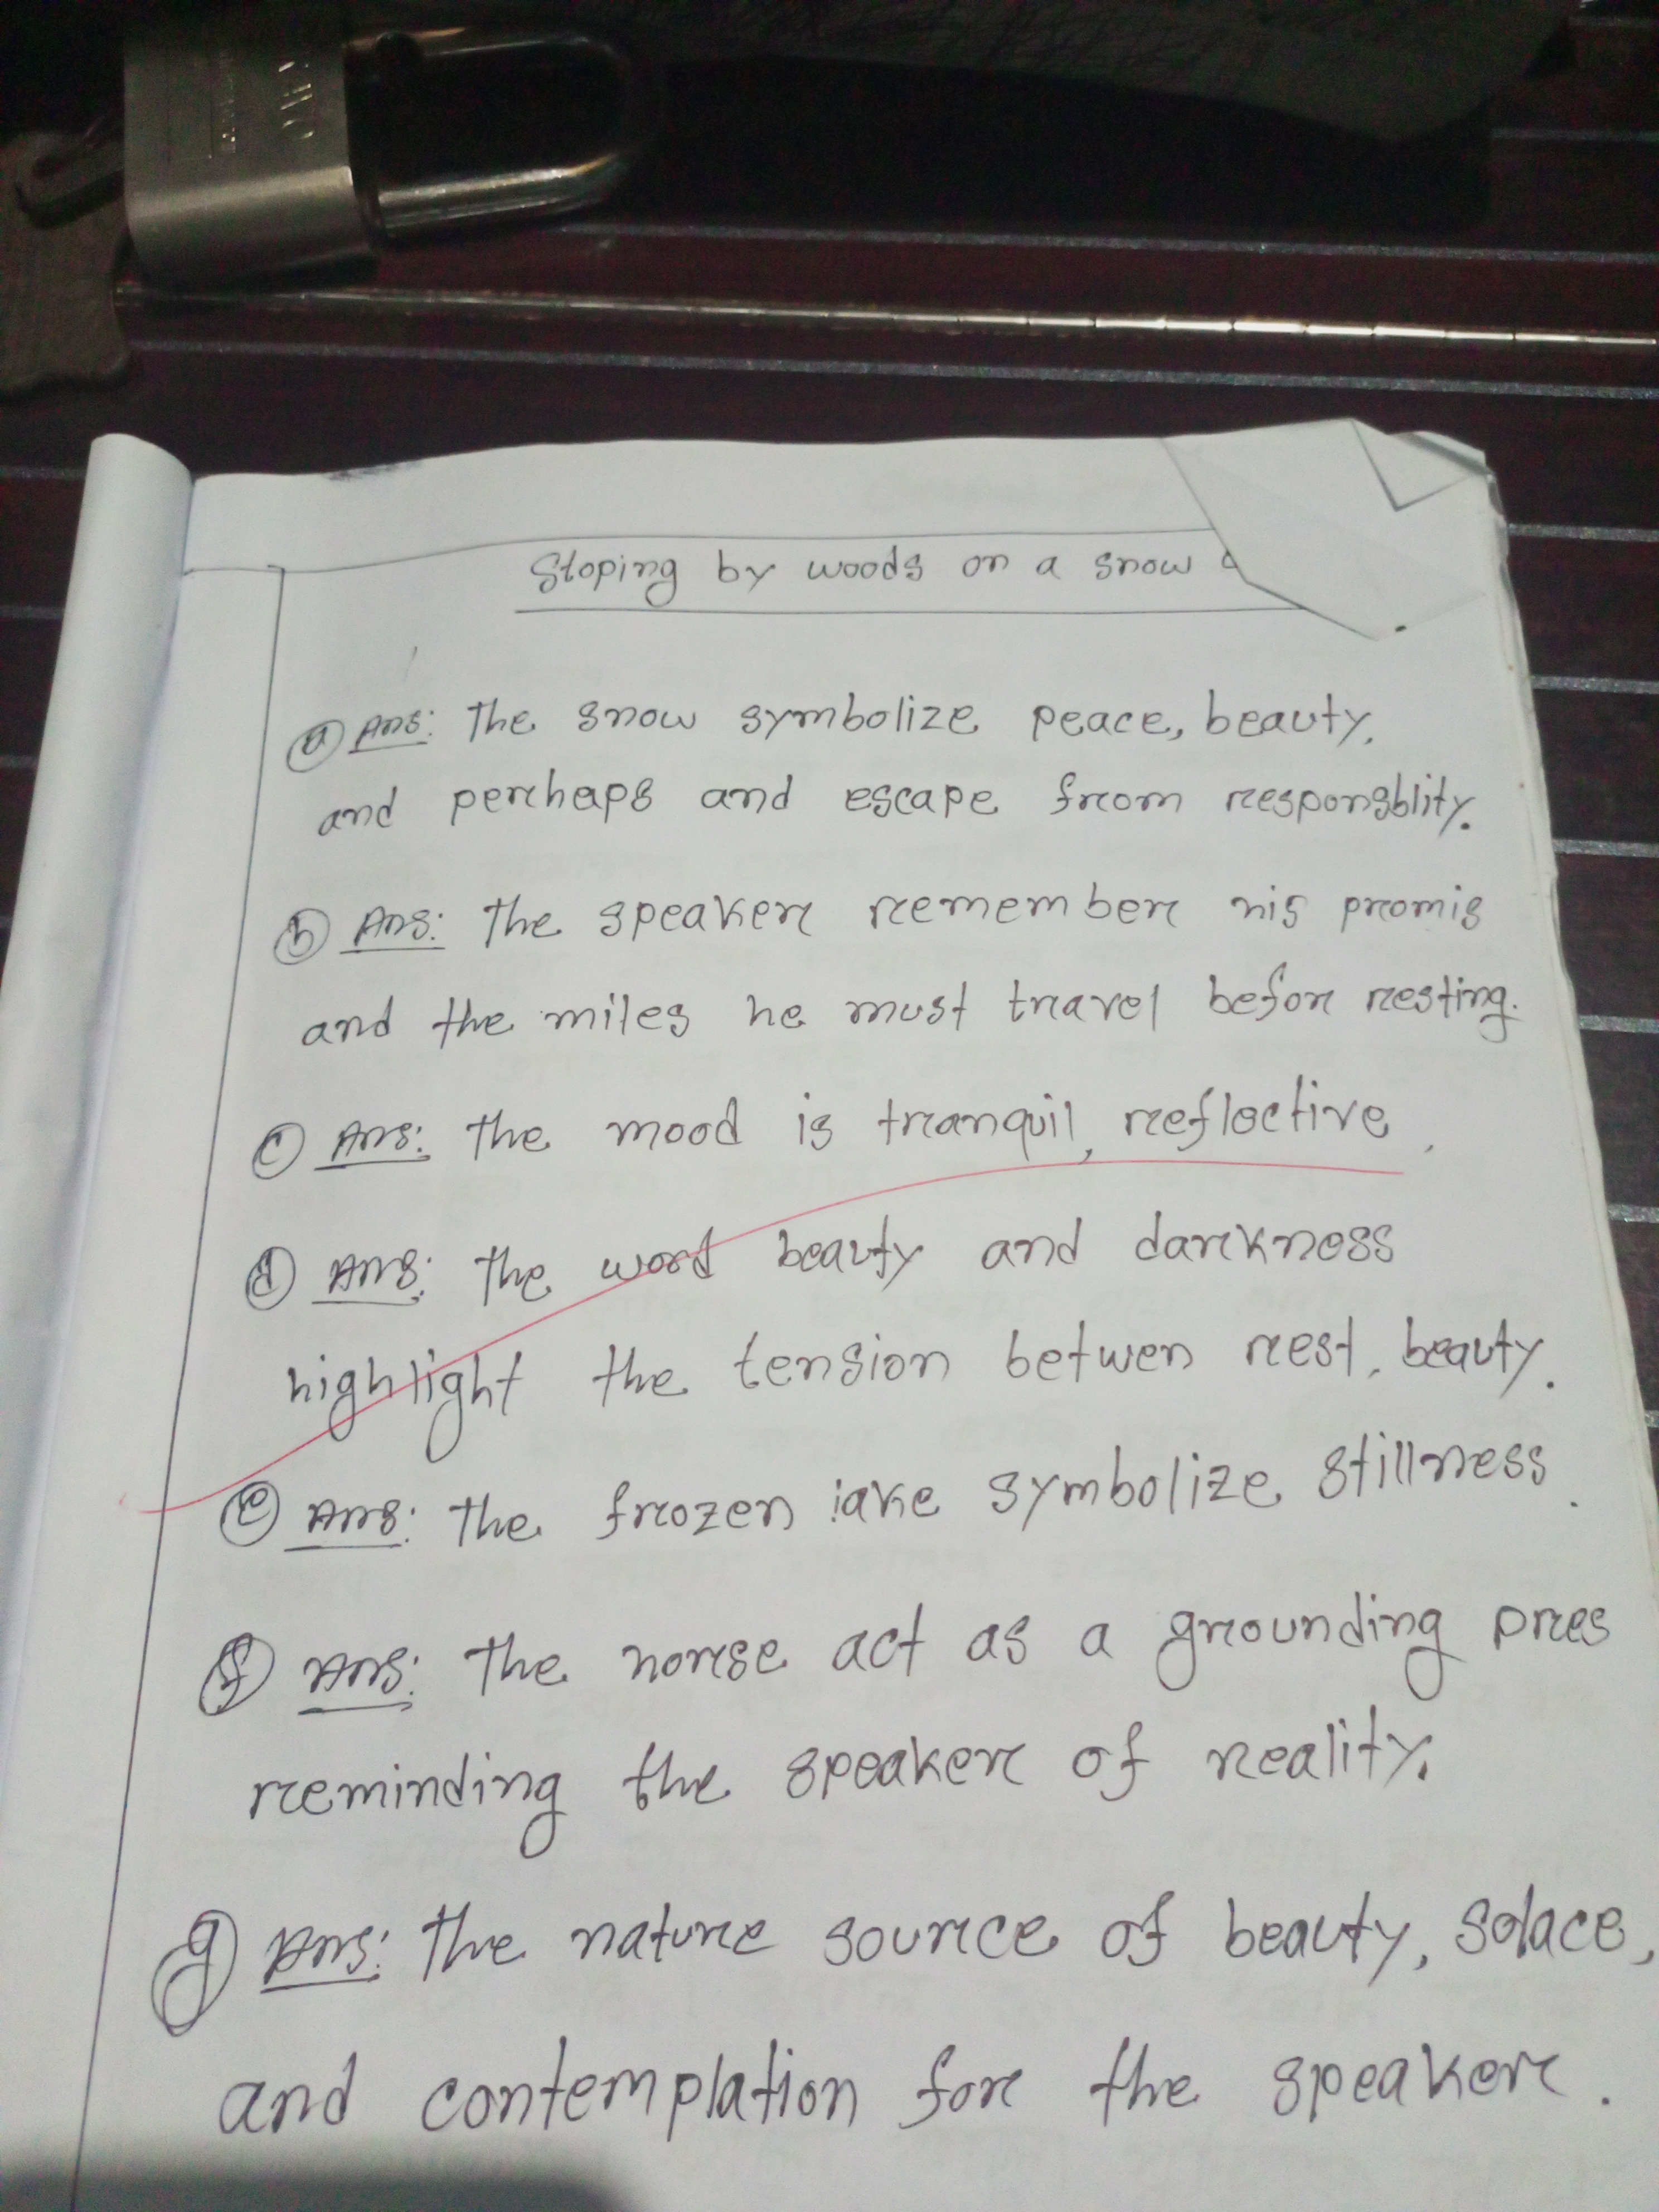 Stoping by woods on a snow
(a) Ans: The snow symbolize peace, beauty,
and perhaps and escape from responsblity.
(b) Ans: The speaker remember his promis
and the miles he must travel before resting.
(c) Ans: The mood is tranquil, reflective.
(d) Ans: The word beauty and darkness
highlight the tension betwen rest, beauty.
(e) Ans: The frozen lake symbolize stillness.
(f) Ans: The horse act as a grounding pres
reminding the speaker of reality.
(g) Ans: The nature source of beauty, solace,
and contemplation for the speaker.